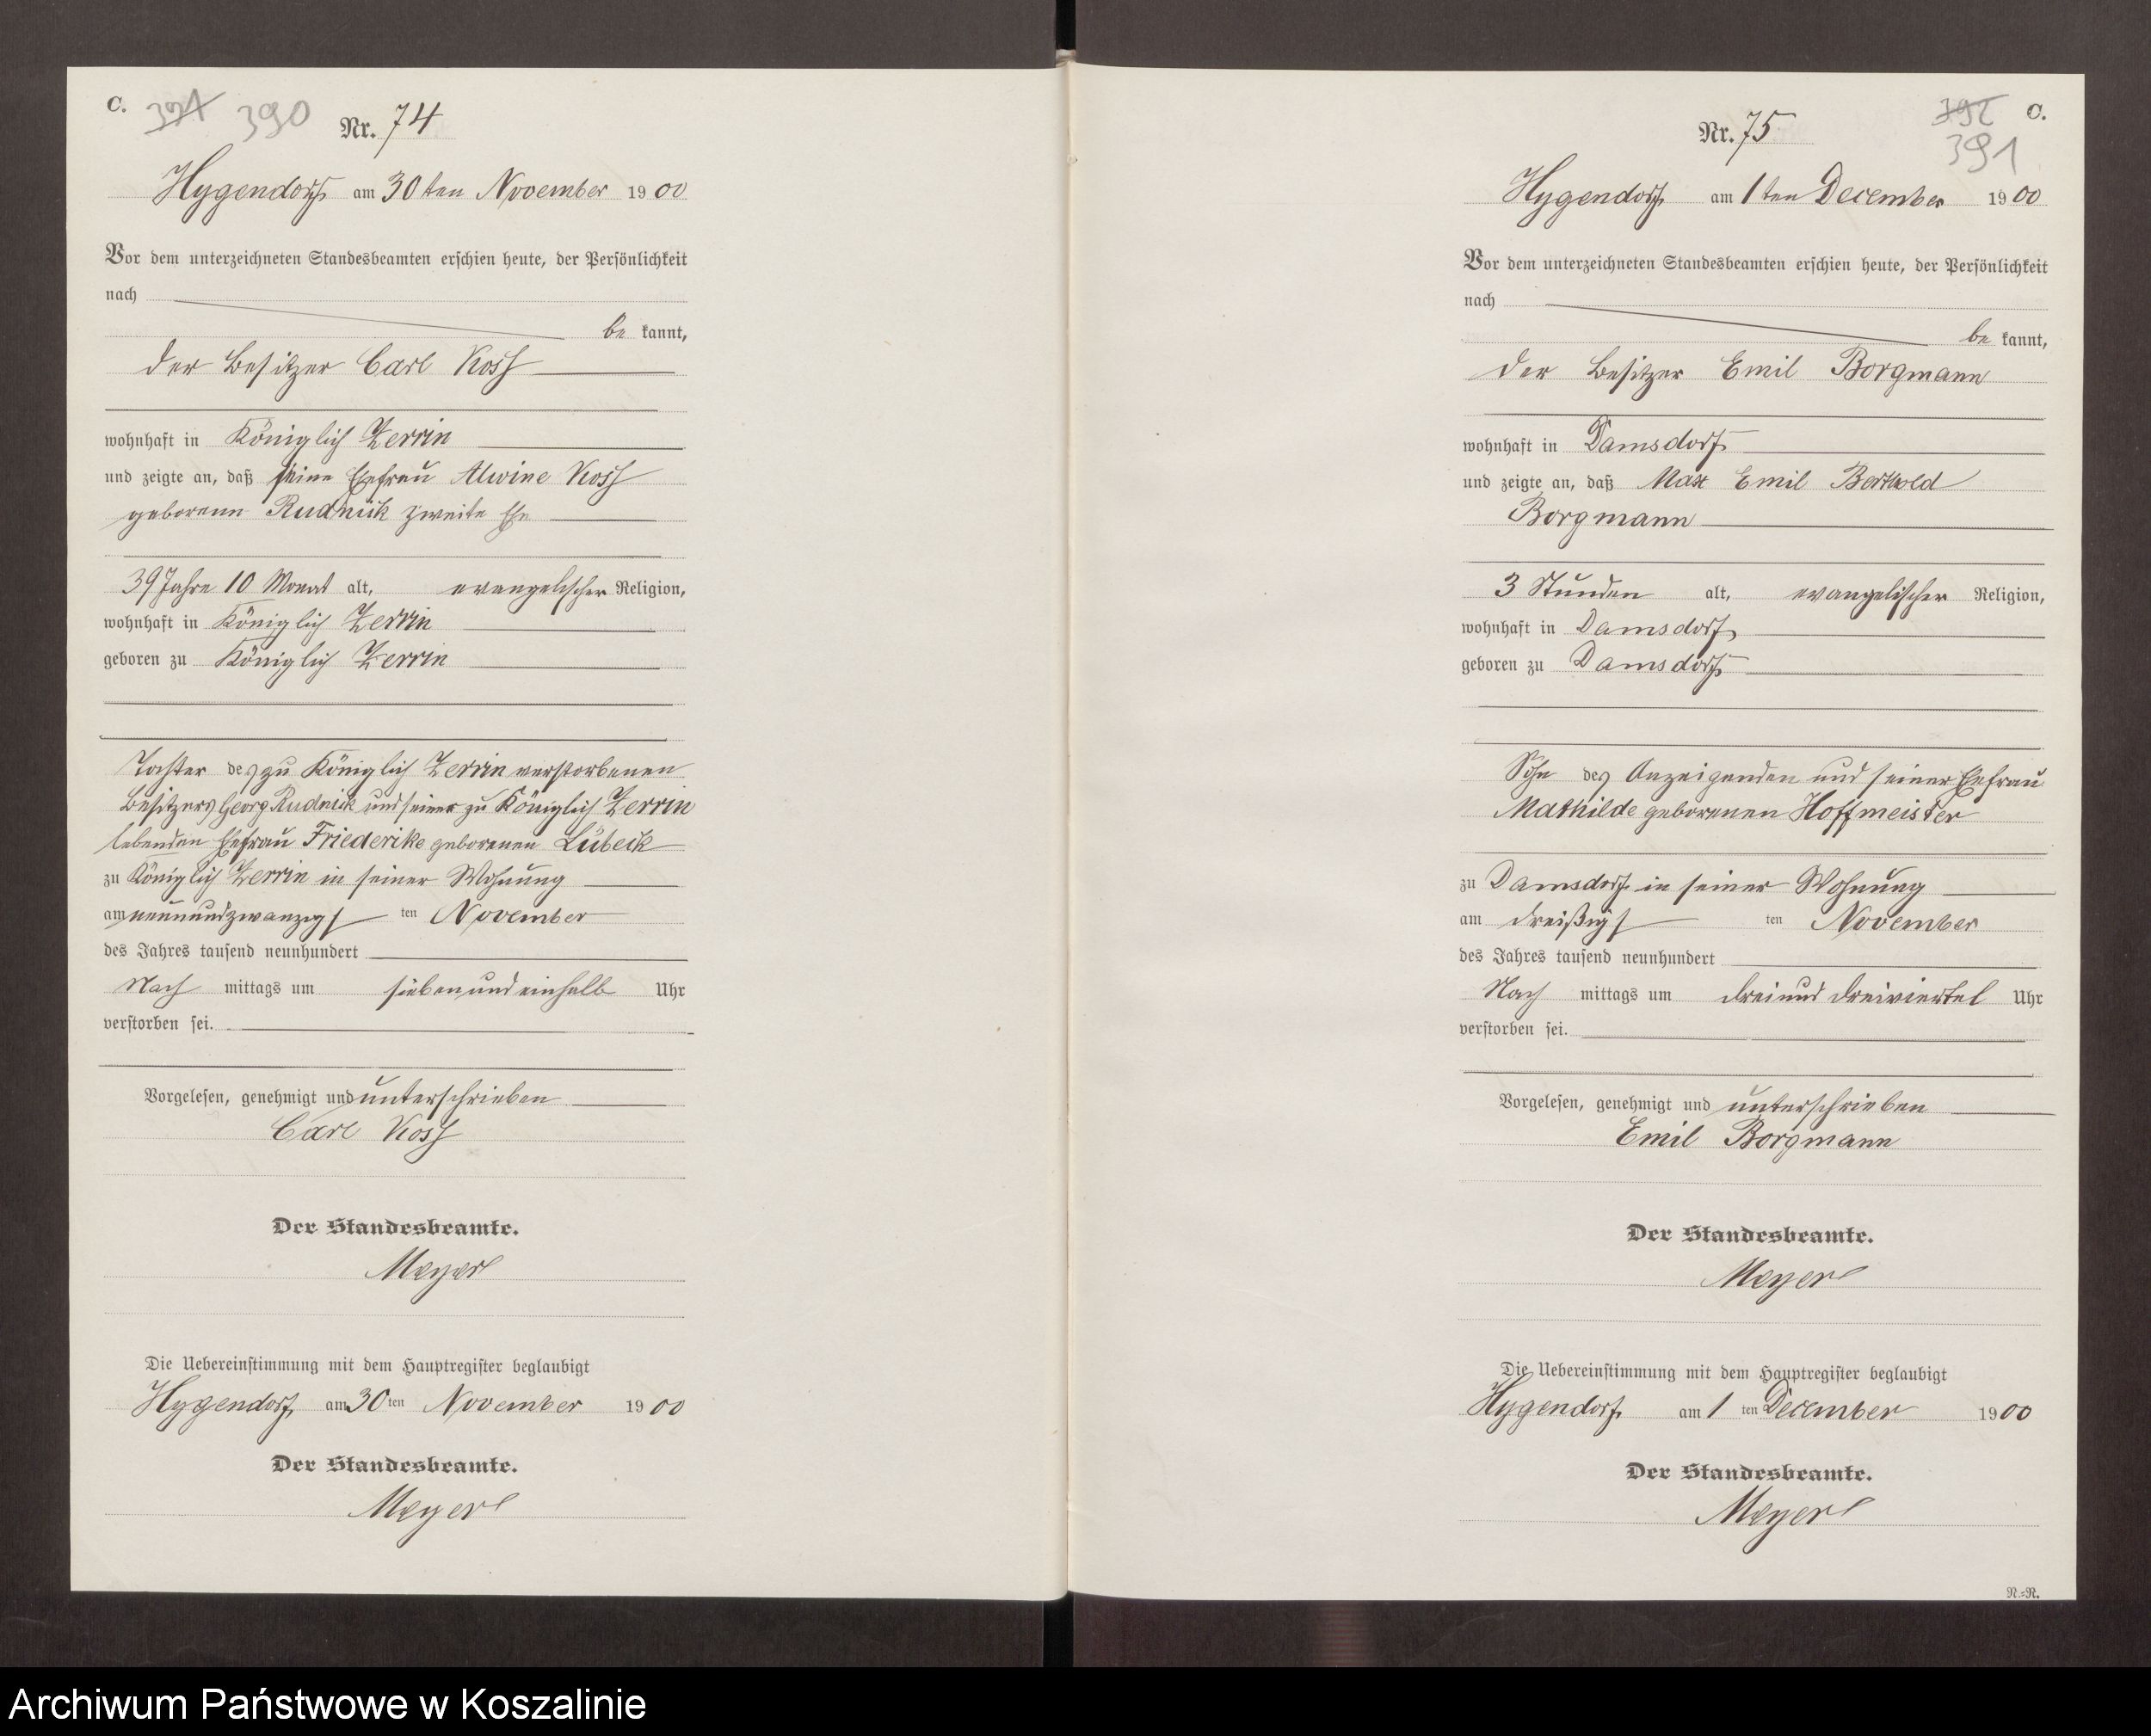 C. 391 390 Nr. 74
Hygendorf am 30ten November 1900
Vor dem unterzeichneten Standesbeamten erschien heute, der Persönlichkeit
nach
be kannt,
der Besitzer Carl Koss
wohnhaft in Königlich Zerrin
und zeigte an, daß seine Ehefrau Alwine Koss
geborene Rudnick zweite Ehe
39 Jahre 10 Monat alt, evangelischer Religion,
wohnhaft in Königlich Zerrin
geboren zu Königlich Zerrin
Tochter des zu Königlich Zerrin verstorbenen
Besitzers Georg Rudnick und seiner zu Königlich Zerrin
lebenden Ehefrau Friederike geborenen Lübeck
zu Königlich Zerrin in seiner Wohnung
am neunundzwanzigsten November
des Jahres tausend neunhundert
Nach mittags um sieben und einhalb Uhr
verstorben sei.
Vorgelesen, genehmigt und unterschrieben
Carl Koss
Der Standesbeamte.
Meyer
Die Uebereinstimmung mit dem Hauptregister beglaubigt
Hygendorf, am 30ten November 1900
Der Standesbeamte.
Meyer
Nr. 75 392 C.
391
Hygendorf am 1ten December 1900
Vor dem unterzeichneten Standesbeamten erschien heute, der Persönlichkeit
nach
be kannt,
der Besitzer Emil Borgmann
wohnhaft in Damsdorf
und zeigte an, daß Max Emil Berthold
Borgmann
3 Stunden alt, evangelischer Religion,
wohnhaft in Damsdorf
geboren zu Damsdorf
Sohn des Anzeigenden und seiner Ehefrau
Mathilde geborenen Hoffmeister
zu Damsdorf in seiner Wohnung
am dreißigsten November
des Jahres tausend neunhundert
Nach mittags um drei und dreiviertel Uhr
verstorben sei.
Vorgelesen, genehmigt und unterschrieben
Emil Borgmann
Der Standesbeamte.
Meyer
Die Uebereinstimmung mit dem Hauptregister beglaubigt
Hygendorf, am 1ten December 1900
Der Standesbeamte.
Meyer
N.-R.
Archiwum Państwowe w Koszalinie